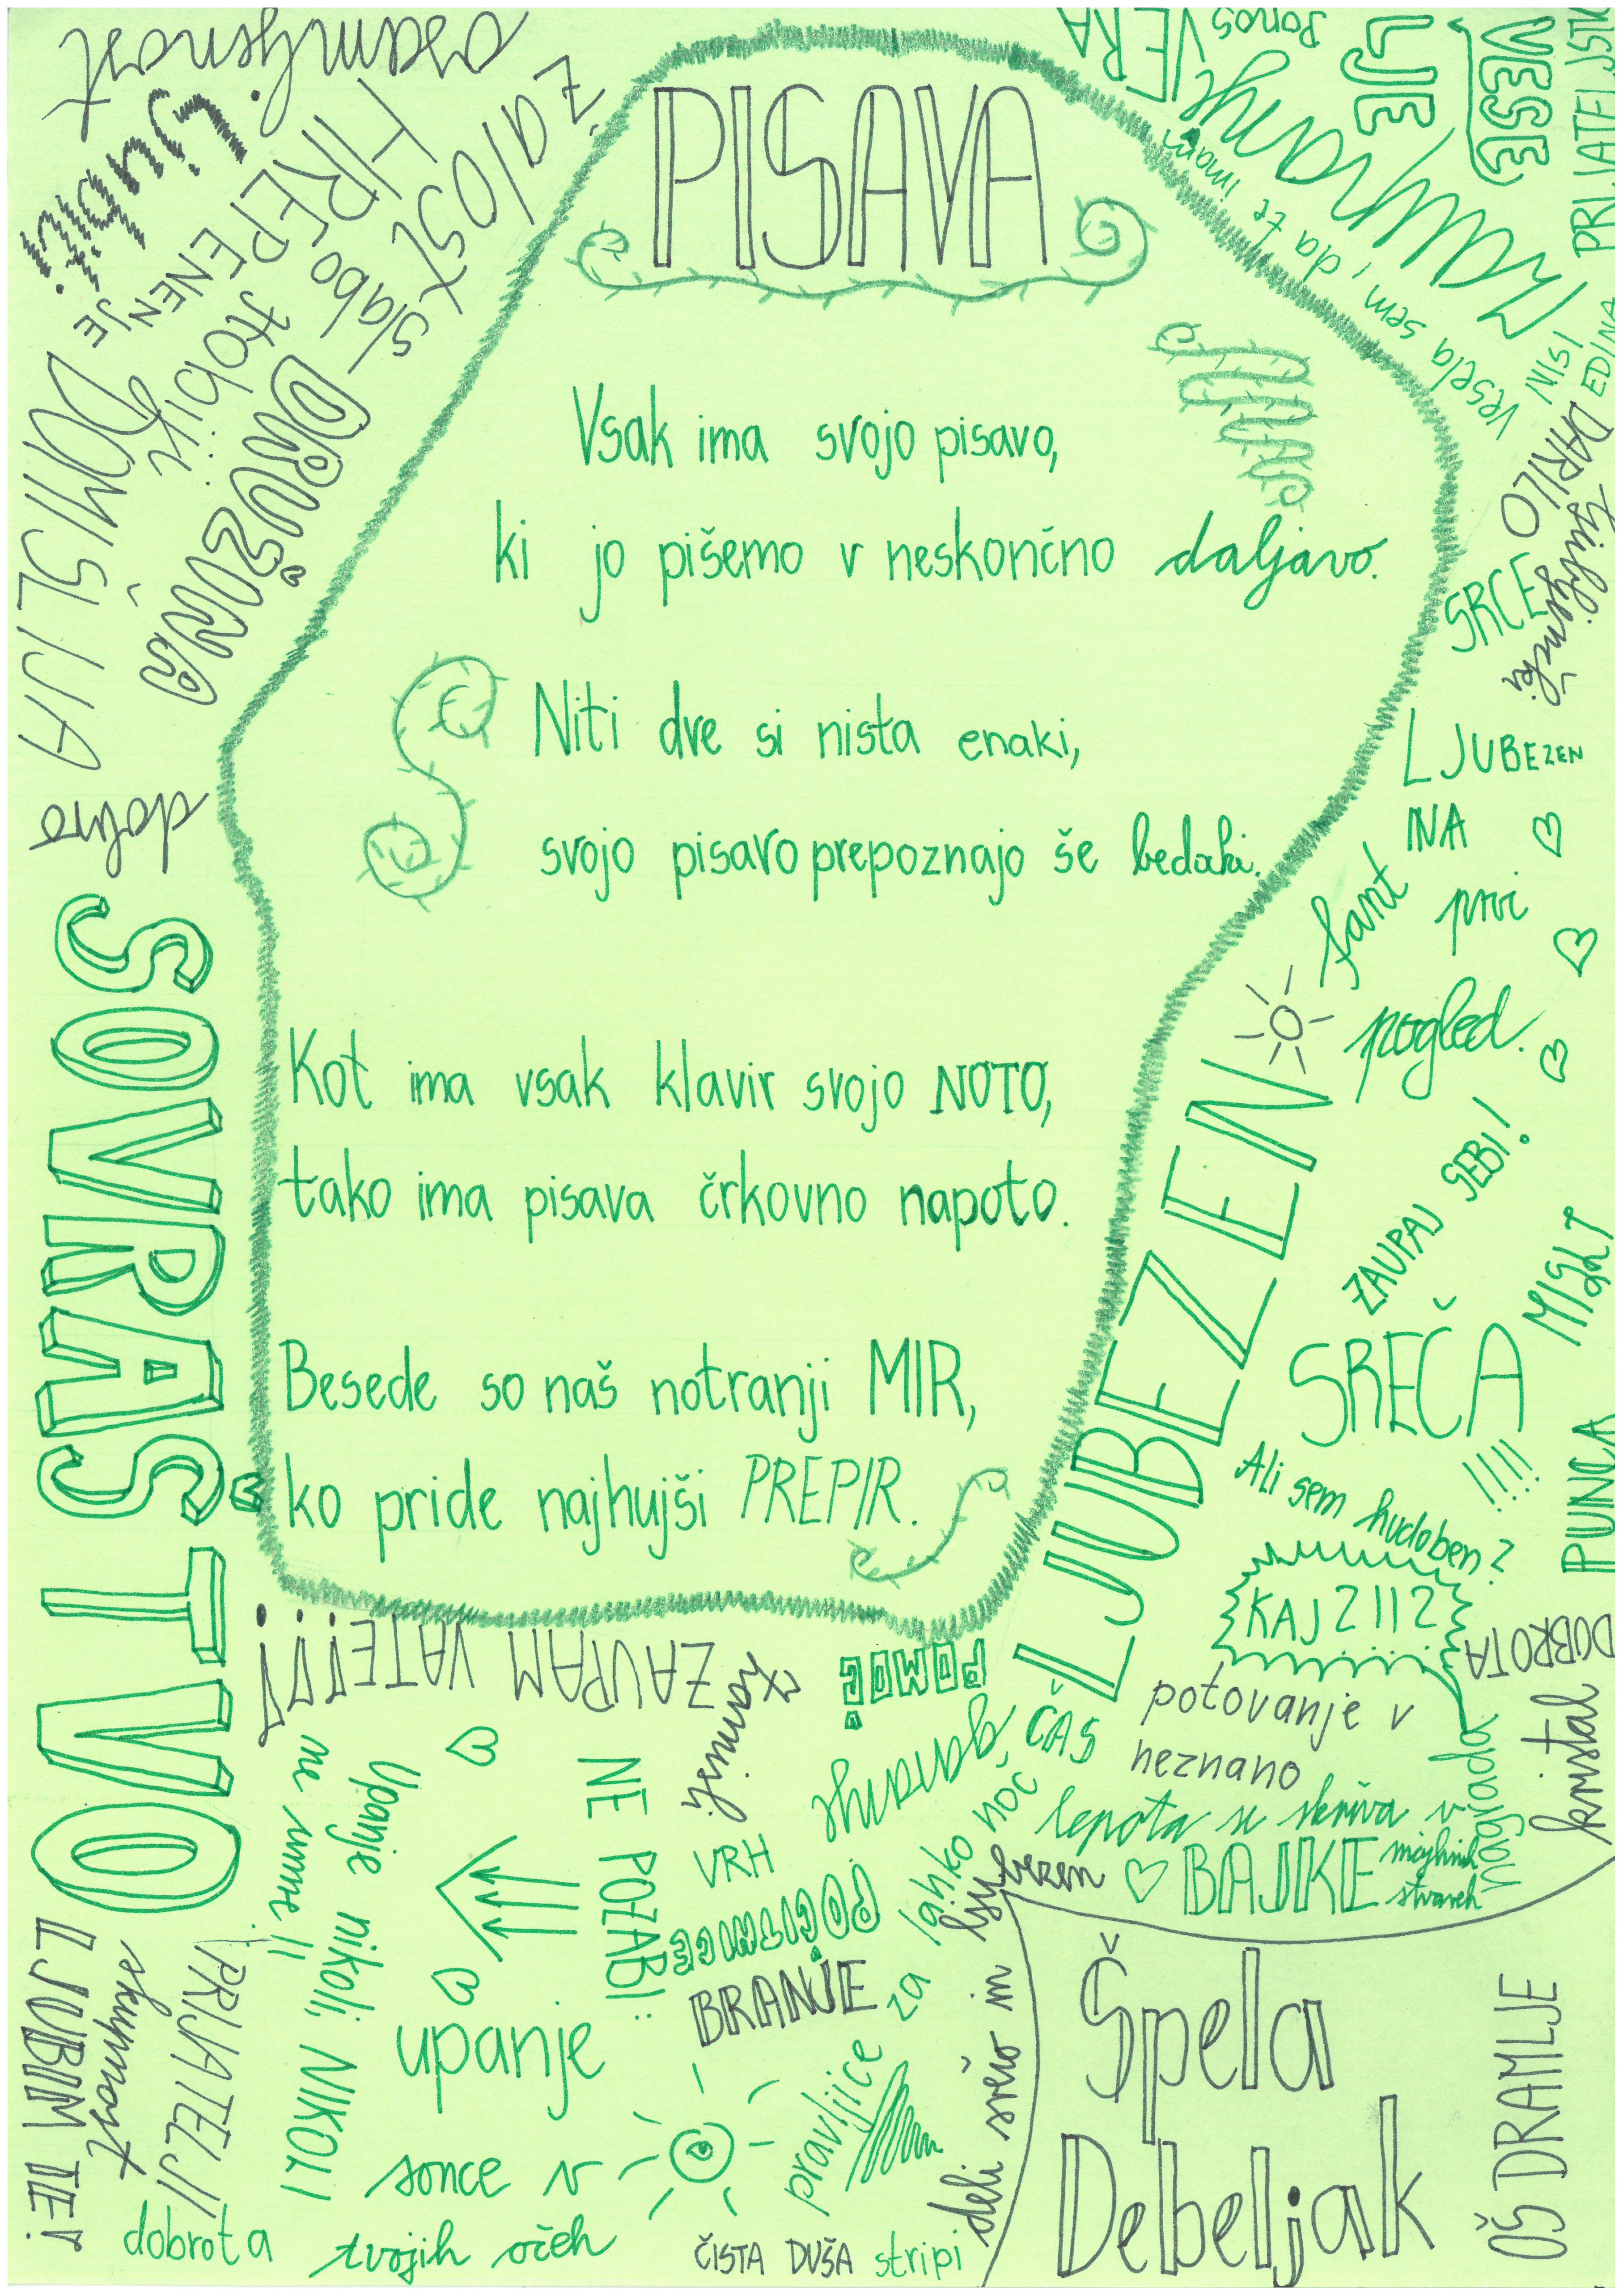 PISAVA
Vsak ima svojo pisavo,
ki jo pišemo v neskončno daljavo.
Niti dve si nista enaki,
svojo pisavo prepoznajo še bedaki.
Kot ima vsak klavir svojo NOTO,
tako ima pisava črkovno napoto.
Besede so naš notranji MIR,
ko pride najhujši PREPIR.
osamljenost
Žalost
HREPE
NEN
JE
slabo
DRUŽINA
DOMIŠLIJA
dobro
SOVRAŠTVO
LJUBIM TE!
skupnost
PRIJATELJI
Upanje nikoli, NIKOLI
ne umre!!
ZAUPAM VATE!!!!
NE POZABI:
upanje
sonce v
tvojih očeh
dobrota
razmisli
VRH
POČITNICE
BRANJE
POMOČ!
ČAS
pravljice za lahko noč
ČISTA DUŠA
stripi
deli srečo in ljubezen
BAJKE
lepota se skriva v
majhnih
stvareh
potovanje v
neznano
nagrada
kristal
DOBROTA
KAJ ZIIZ
Ali sem hudoben?
PUNCA
SREČA
!!!!
ZAUPAJ SEBI!
LJUBEZEN
fant
LJUBEZEN
NA
prvi
pogled.
SRCE
DARILO
življenjski
NISI
EDINA
PRIJATELJSTV
VESE
LJE
ponos
VERA
vesela sem, da te imam
Špela
Debeljak
OŠ DRAMLJE